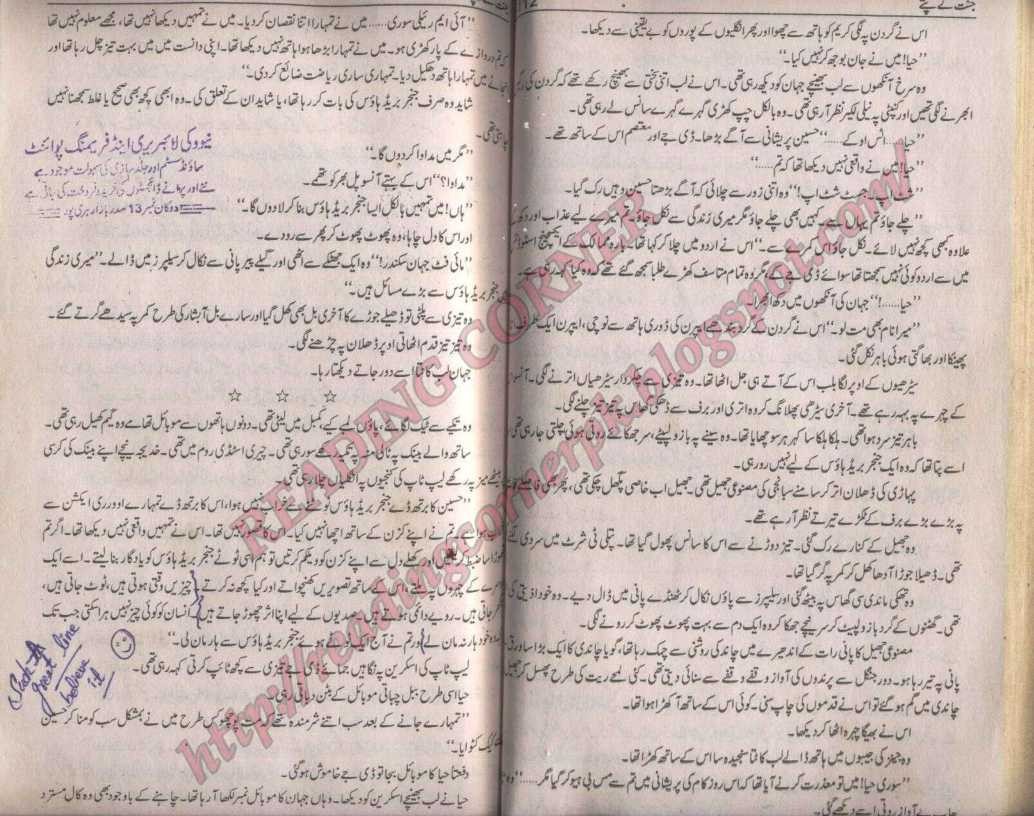 جنت کے پتے
12
اس نے گردن پہ لگی کریم کو ہاتھ سے چھوا اور پھر انگلیوں کے پوروں کو بے یقینی سے دیکھا۔
”حیا! میں نے جان بوجھ کر نہیں کیا۔“
وہ سرخ آنکھوں سے لب بھینچے جہان کو دیکھ رہی تھی۔ اس نے لب اتنی سختی سے بھینچ رکھے تھے کہ گردن کی رگیں
ابھرنے لگی تھیں اور کنپٹی پہ نیلی لکیر نظر آ رہی تھی۔ وہ بالکل چپ کھڑی گہرے گہرے سانس لے رہی تھی۔
”حیا...... اٹس اوکے......“ حسین پریشانی سے آگے بڑھا۔ ڈی جے اور معتصم اس کے ساتھ تھے۔
”حیا! میں نے واقعی نہیں دیکھا تھا کہ تم......“
جسٹ شٹ اپ!“ وہ اتنی زور سے چلائی کہ آگے بڑھتا حسین وہیں رک گیا۔
چلے جاؤ تم یہاں سے۔ کہیں بھی چلے جاؤ مگر میری زندگی سے نکل جاؤ۔ تم میرے لیے عذاب اور دکھ کے
علاوہ کبھی کچھ نہیں لائے۔ نکل جاؤ اس کمرے سے۔“ اس نے اردو میں چلا کر کہا تھا۔ بارہ ممالک کے ایکسچینج اسٹوڈنٹس
میں سے اردو کوئی نہیں سمجھتا تھا سوائے ڈی جے کے، مگر وہ تمام متاسف کھڑے طلبا سمجھ گئے تھے کہ وہ کیا کہہ رہی ہے۔
”حیا......!“ جہان کی آنکھوں میں دکھ ابھرا۔
”میرا نام بھی مت لو۔“ اس نے گردن کے گرد بندھے ایپرن کی ڈوری ہاتھ سے نوچی، ایپرن ایک طرف
پھینکا اور بھاگتی ہوئی باہر نکل گئی۔
سیڑھیوں کے اوپر لگا بلب اس کے آتے ہی جل اٹھا تھا۔ وہ تیزی سے چکر دار سیڑھیاں اترنے لگی۔ آنسو اس
کے چہرے پہ بہہ رہے تھے۔ آخری سیڑھی پھلانگ کر وہ اتری اور برف سے ڈھکی گھاس پہ تیز تیز چلنے لگی۔
باہر تیز سرد ہوا تھی۔ ہلکا ہلکا سا کہر ہر سو چھایا تھا۔ وہ سینے پہ بازو لپیٹے، سر جھکائے روتی ہوئی چلتی جا رہی تھی۔
اسے پتا تھا کہ وہ ایک جنجر بریڈ ہاؤس کے لیے نہیں رو رہی۔
پہاڑی کی ڈھلان اتر کر سامنے سبانجی کی مصنوعی جھیل تھی۔ جھیل اب خاصی پگھل چکی تھی، پھر بھی فاصلے فاصلے
پہ بڑے بڑے برف کے ٹکڑے تیرتے نظر آ رہے تھے۔
وہ جھیل کے کنارے رک گئی۔ تیز دوڑنے سے اس کا سانس پھول گیا تھا۔ پتلی ٹی شرٹ میں سردی لگنے
تھی۔ ڈھیلا جوڑا آدھا کھل کر کمر پہ گر گیا تھا۔
وہ تھکی ماندی سی گھاس پہ بیٹھ گئی اور سلیپرز سے پاؤں نکال کر ٹھنڈے پانی میں ڈال دیے۔ وہ خود اذیتی کی
تھی۔ گھٹنوں کے گرد بازو لپیٹ کر سر نیچے جھکا کر وہ ایک دم سے پھوٹ پھوٹ کر رونے لگی۔
مصنوعی جھیل کا پانی رات کے اندھیرے میں چاندی کی روشنی سے چمک رہا تھا، گویا چاندی کا ایک بڑا سا ورق
پانی پہ تیر رہا ہو۔ دور جنگل سے پرندوں کی آواز وقفے وقفے سے سنائی دیتی تھی۔ کئی لمحے ریت کی طرح پھسل کر جھیل کی
چاندی میں گم ہو گئے تو اس نے قدموں کی چاپ سنی۔ کوئی اس کے ساتھ آ کھڑا ہوا تھا۔
اس نے بھیگا چہرہ اٹھا کر دیکھا۔
وہ جینز کی جیبوں میں ہاتھ ڈالے لب کاٹتا سنجیدہ سا اس کے ساتھ کھڑا تھا۔
”سوری حیا! میں تو معذرت کرنے آیا تھا کہ اس روز کام کی پریشانی میں تم سے مس بی ہیو کر گیا مگر......“ وہ
چاپ بے آواز روتی اسے دیکھے گئی۔
”آئی ایم ریئلی سوری...... میں نے تمہارا اتنا نقصان کر دیا۔ میں نے تمہیں دیکھا نہیں تھا، مجھے معلوم نہیں تھا
کہ تم دروازے کے پار کھڑی ہو۔ میں نے تمہارا بڑھا ہوا ہاتھ نہیں دیکھا تھا۔ اپنی دانست میں میں بہت تیز چل رہا تھا اور
انجانے میں تمہارا ہاتھ دھکیل دیا۔ تمہاری ساری ریاضت ضائع کر دی۔“
شاید وہ صرف جنجر بریڈ ہاؤس کی بات کر رہا تھا، یا شاید ان کے تعلق کی۔ وہ ابھی کچھ بھی صحیح یا غلط سمجھنا نہیں
چاہتی تھی۔
”مگر میں مداوا کر دوں گا۔“
”مداوا؟“ اس کے بہتے آنسو پل بھر کو تھمے۔
”ہاں! میں تمہیں بالکل ایسا جنجر بریڈ ہاؤس بنا کر لا دوں گا۔“
اور اس کا دل چاہا، وہ پھوٹ پھوٹ کر پھر سے رو دے۔
”مائی فٹ جہان سکندر!“ وہ ایک جھٹکے سے اٹھی اور گیلے پیر پانی سے نکال کر سلیپرز میں ڈالے۔ ”میری زندگی
میں جنجر بریڈ ہاؤس سے بڑے مسائل ہیں۔“
وہ تیزی سے پلٹی تو ڈھیلے جوڑے کا آخری بل بھی کھل گیا اور سارے بال آبشار کی طرح کمر پہ سیدھے گرتے گئے۔
وہ تیز تیز قدم اٹھاتی اوپر ڈھلان پہ چڑھنے لگی۔
جہان لب کاٹتا اسے دور جاتے دیکھتا رہا۔
☆ ☆ ☆
وہ تکیے سے ٹیک لگائے، پاؤں لمبے کیے کمبل میں لیٹی تھی۔ دونوں ہاتھوں سے موبائل تھامے وہ گیم کھیل رہی تھی۔
ساتھ والے بینک پہ ٹالی منہ پہ تکیہ رکھے سو رہی تھی۔ چیری اسٹڈی روم میں تھی۔ خدیجہ نیچے اپنے بینک کی کرسی
پہ بیٹھی میز پہ رکھے لیپ ٹاپ کی کنجیوں پہ انگلیاں چلا رہی تھی۔
”حسین کا برتھ ڈے جنجر بریڈ ہاؤس کے ٹوٹنے سے خراب نہیں ہوا، اس کا برتھ ڈے تمہارے اوور ری ایکشن سے
ہوا ہے، تم نے اپنے کزن کے ساتھ اچھا نہیں کیا۔ اس کا قصور نہیں تھا۔ اس نے تمہیں واقعی نہیں دیکھا تھا۔ اگر تم
تھوڑا سا ضبط کر لیتیں اور کھلے دل سے اپنے کزن کو ویلکم کرتیں تو ہم اسی ٹوٹے جنجر بریڈ ہاؤس کو یادگار بنا لیتے۔ اسے ایک
دوسرے کے چہروں پہ ملتے، اس کے ساتھ تصویریں کھنچواتے اور کیا کچھ نہ کرتے۔ چیزیں وقتی ہوتی ہیں، ٹوٹ جاتی ہیں،
بکھر جاتی ہیں۔ رویے دائمی ہوتے ہیں۔ صدیوں کے لیے اپنا اثر چھوڑ جاتے ہیں۔ انسان کو کوئی چیز نہیں ہرا سکتی جب تک
کہ وہ خود ہار نہ مان لے اور تم نے آج ایک ٹوٹے ہوئے جنجر بریڈ ہاؤس سے ہار مان لی۔“
لیپ ٹاپ کی اسکرین پہ نگاہیں جمائے ڈی جے تیزی سے کچھ ٹائپ کرتی کہہ رہی تھی۔
حیا اسی طرح ببل چباتی موبائل کے بٹن دباتی رہی۔
”تمہارے جانے کے بعد سب اتنے شرمندہ تھے کہ مت پوچھو۔ کس طرح میں نے بمشکل سب کو منا کر حسین
سے کیک کٹوایا۔“
دفعتاً حیا کا موبائل بجا تو ڈی جے خاموش ہو گئی۔
حیا نے لب بھینچے اسکرین کو دیکھا۔ وہاں جہان کا موبائل نمبر لکھا آ رہا تھا۔ چاہنے کے باوجود بھی وہ کال مسترد
نیو وکی لائبریری اینڈ فریمنگ پوائنٹ
ساؤنڈ سسٹم اور جلد سازی کی سہولت موجود ہے
نئے اور پرانے ڈائجسٹوں کی خرید و فروخت کی جاتی ہے
دوکان نمبر 13 صدر بازار ہری پور
great line
believe
it
READING CORNER
http://readingcornerpk.blogspot.com/